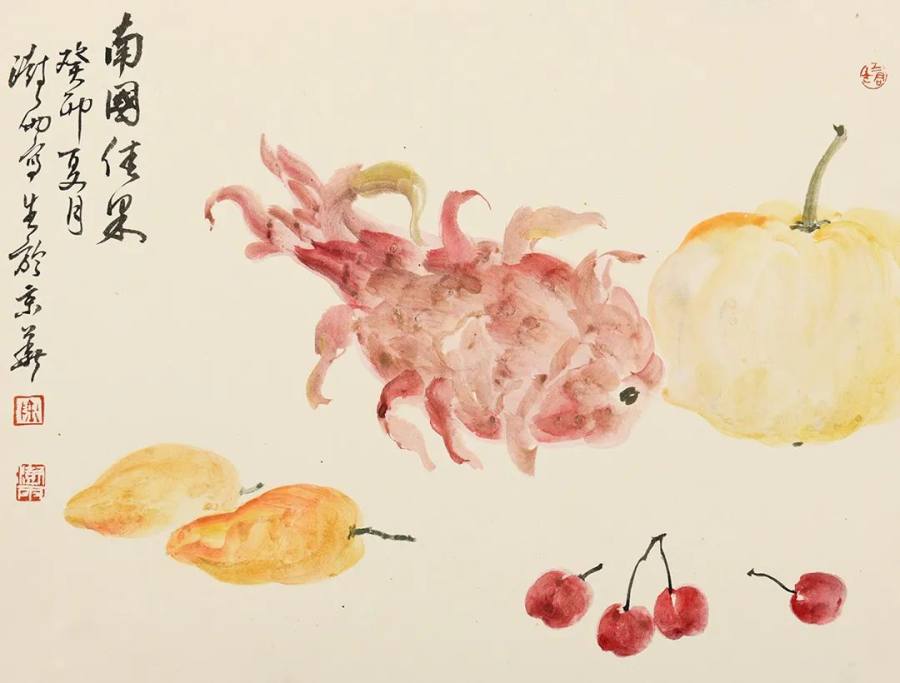 南國佳果
癸卯夏月
澍雨寫生於京華